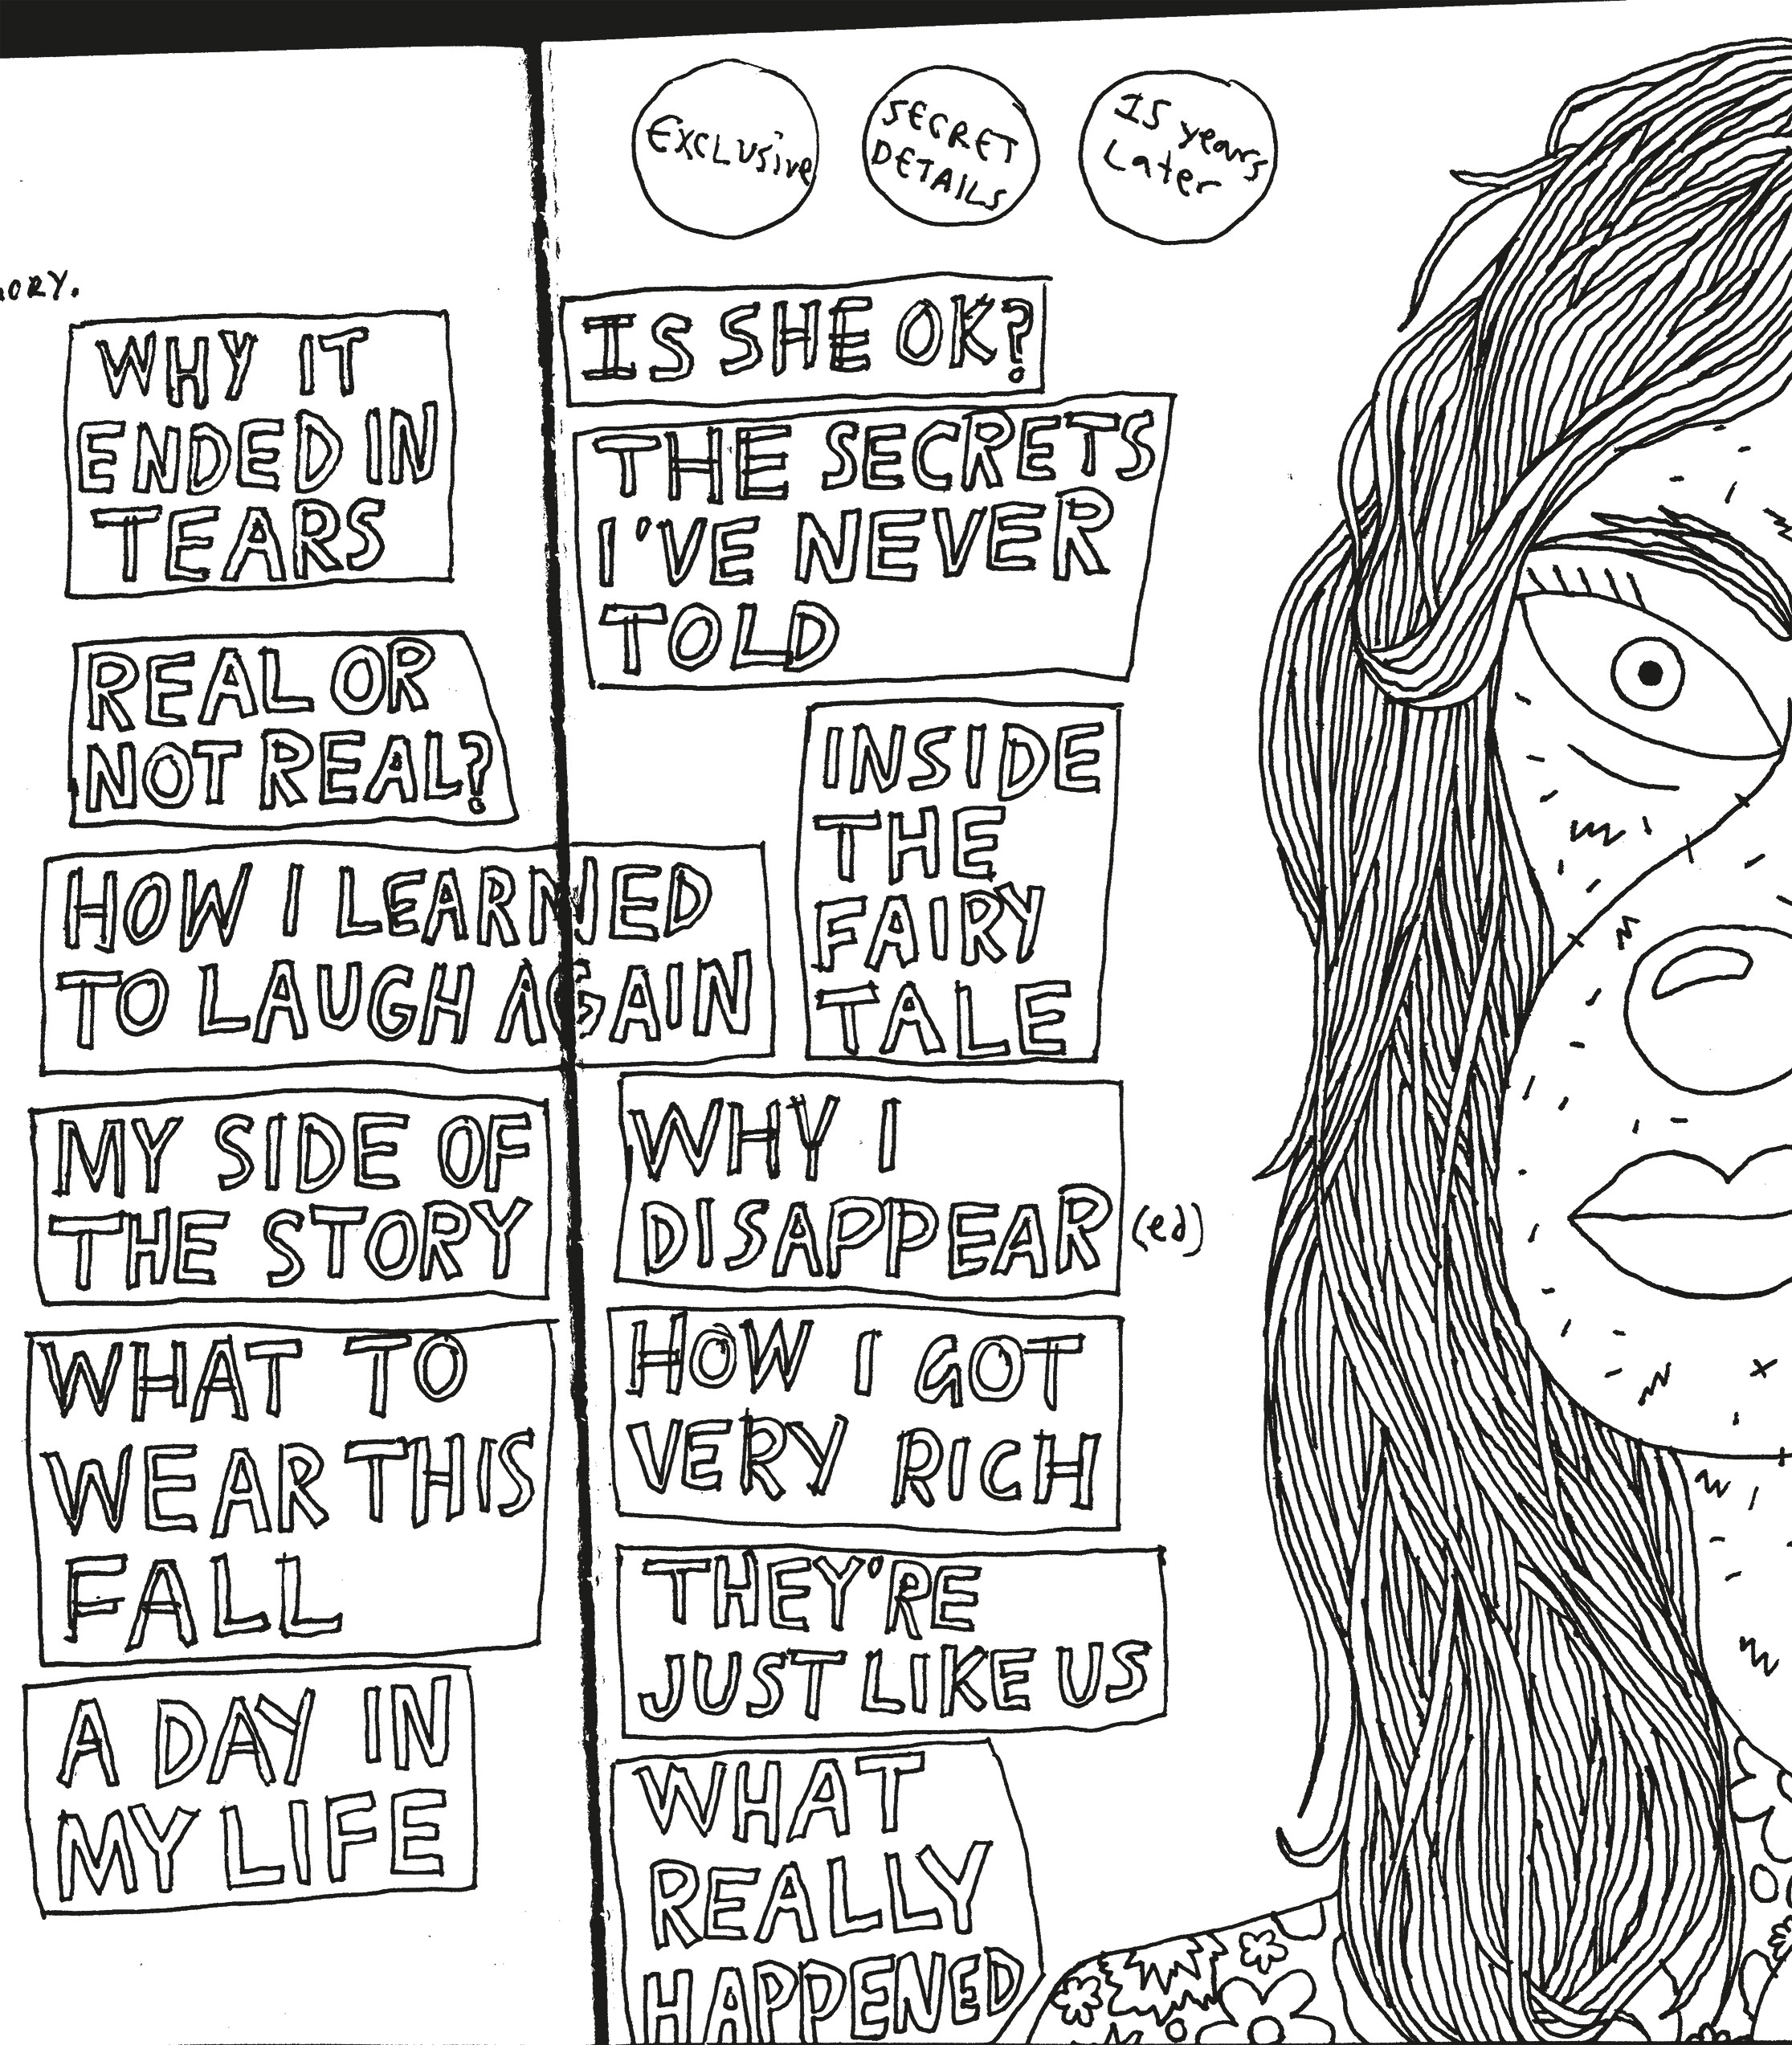 Exclusive
SECRET
DETAILS
15 years
Later
WHY IT
ENDED IN
TEARS
REAL OR
NOT REAL?
HOW I LEARNED
TO LAUGH AGAIN
MY SIDE OF
THE STORY
WHAT TO
WEAR THIS
FALL
A DAY IN
MY LIFE
IS SHE OK?
THE SECRETS
I'VE NEVER
TOLD
INSIDE
THE
FAIRY
TALE
WHY I
DISAPPEAR (ed)
HOW I GOT
VERY RICH
THEY'RE
JUST LIKE US
WHAT
REALLY
HAPPENED